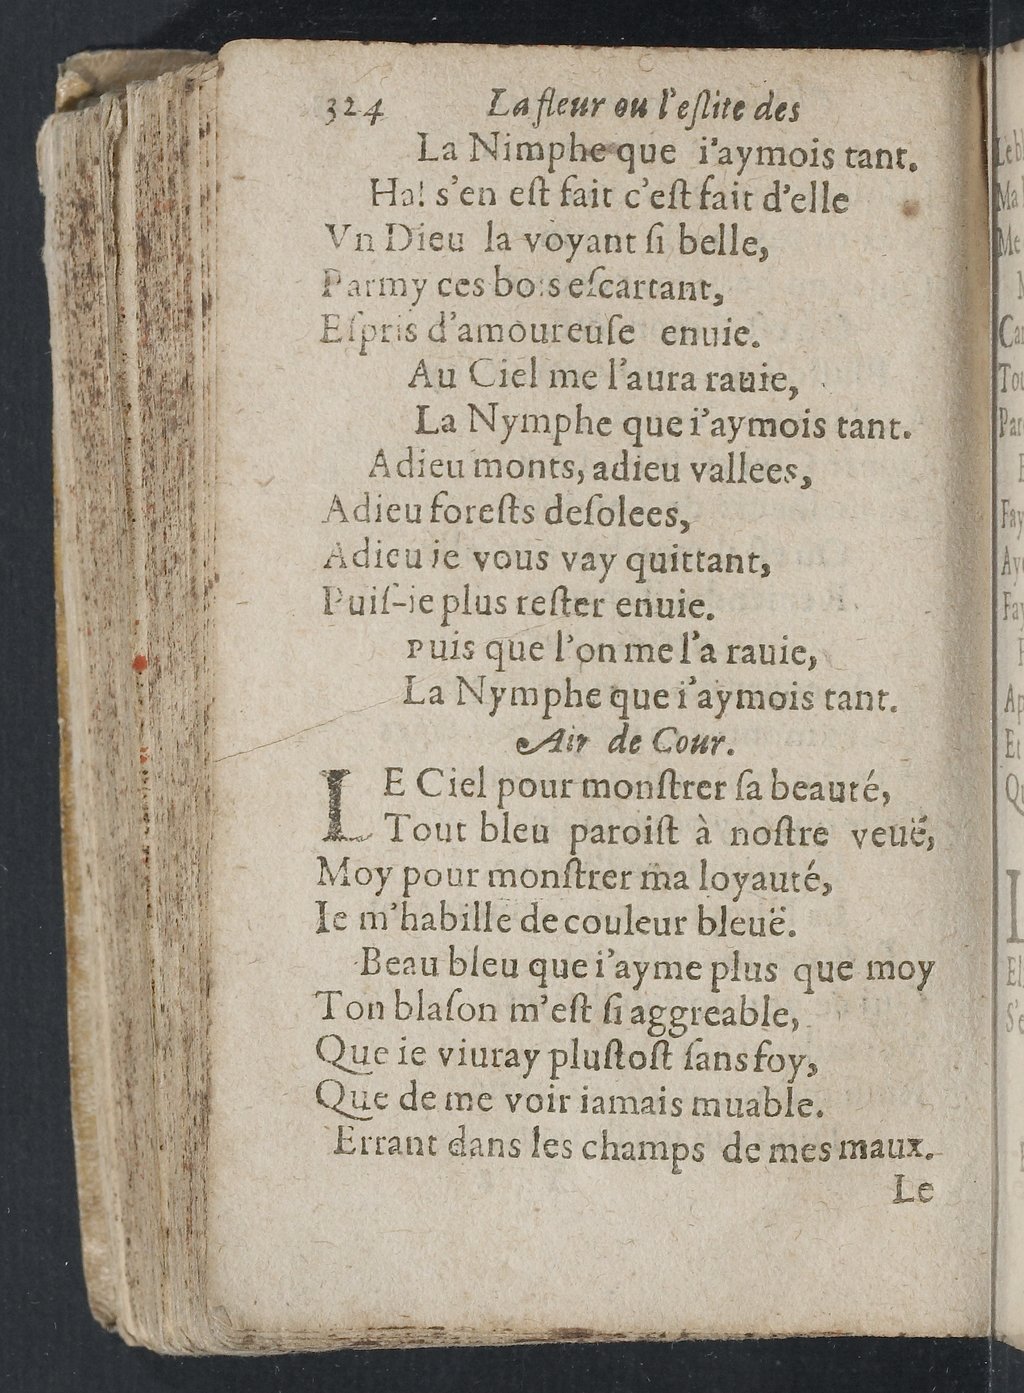 324 La fleur ou l'eſlite des
La Nimphe que i'aymois tant.
Ha! s'en eſt fait c'eſt fait d'elle
Vn Dieu la voyant ſi belle,
Parmy ces bois eſcartant,
Eſpris d'amoureuſe enuie.
Au Ciel me l'aura rauie,
La Nymphe que i'aymois tant.
Adieu monts, adieu vallees,
Adieu foreſts deſolees,
Adieu ie vous vay quittant,
Puiſ-ie plus reſter enuie.
Puis que l'on me l'a rauie,
La Nymphe que i'aymois tant.
Air de Cour.
LE Ciel pour monſtrer ſa beauté,
Tout bleu paroiſt à noſtre veuë,
Moy pour monſtrer ma loyauté,
Ie m'habille de couleur bleuë.
Beau bleu que i'ayme plus que moy
Ton blaſon m'eſt ſi aggreable,
Que ie viuray pluſtoſt ſans foy,
Que de me voir iamais muable.
Errant dans les champs de mes maux.
Le